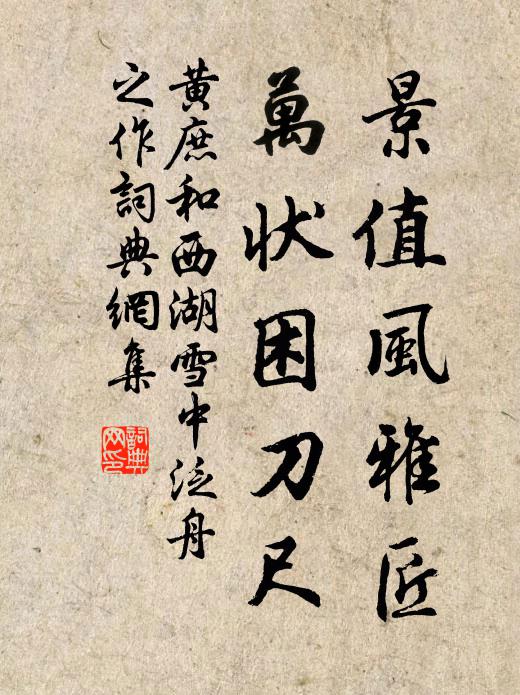 景值風雅匠
萬状困刀尺
黃庶和西湖雪中泛舟
之作詞典網集
詞典网印